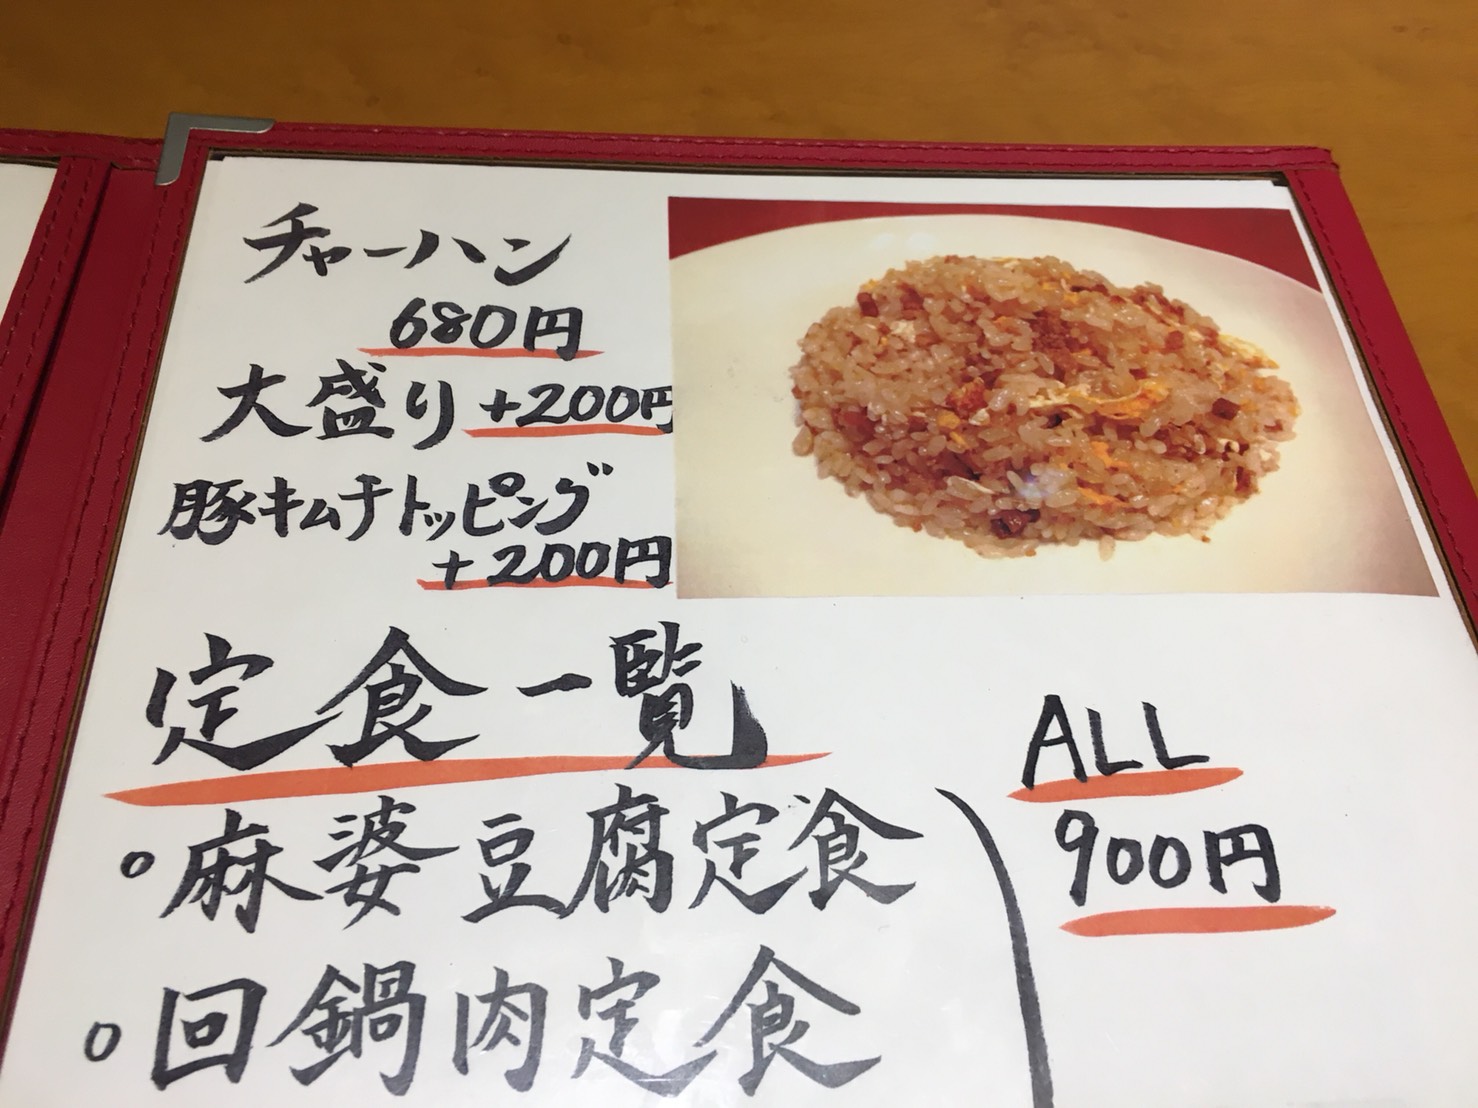 チャーハン
680円
大盛り +200円
豚キムチトッピング
+200円
定食一覧
ALL
900円
○麻婆豆腐定食
○回鍋肉定食